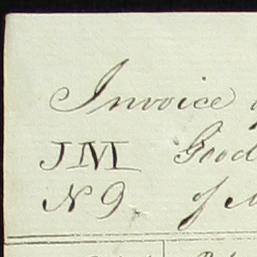 Invoice
JM Good
N 9 of